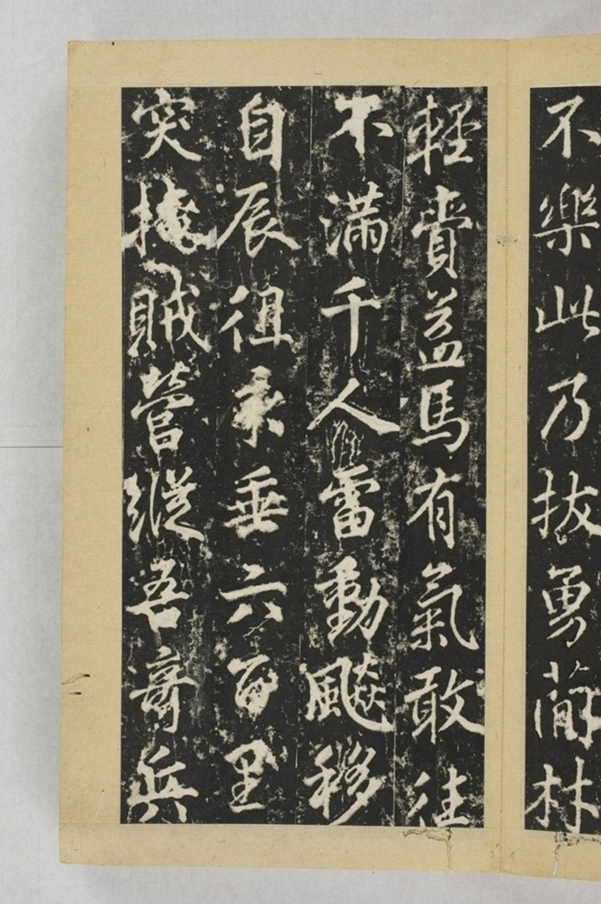 不樂此乃拔勇蕳材
輕賞益馬有氣敢往
不滿千人雷動飈移
自辰徂未垂六百里
突擣賊營縱吾奇兵